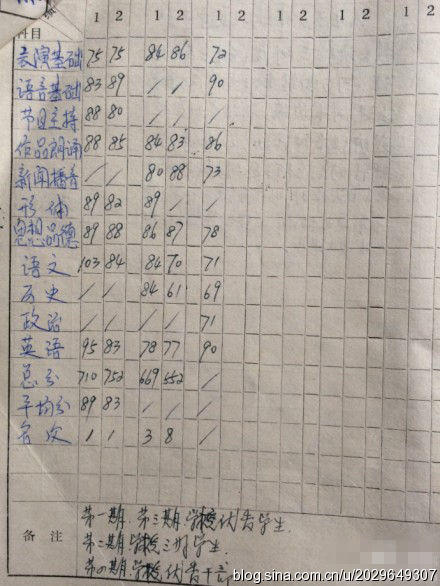 科目 1 2 1 2 1 2 1 2 1 2 1 2
表演基础 75 75 84 86 72
语音基础 83 89 / / 90
节目主持 88 80 / / /
作品朗诵 88 85 84 83 86
新闻播音 / / 80 88 73
形体 89 82 89 / /
思想品德 89 88 86 87 78
语文 103 84 84 70 71
历史 / / 84 61 69
政治 / / / / 71
英语 95 83 78 77 90
总分 710 752 669 552 /
平均分 89 83 / / /
名次 1 1 3 8 /
备注
第一期.第三期.学校优秀学生.
第二期.学校三好学生.
第四期.学校优秀干部
blog.sina.com.cn/u/2029649307